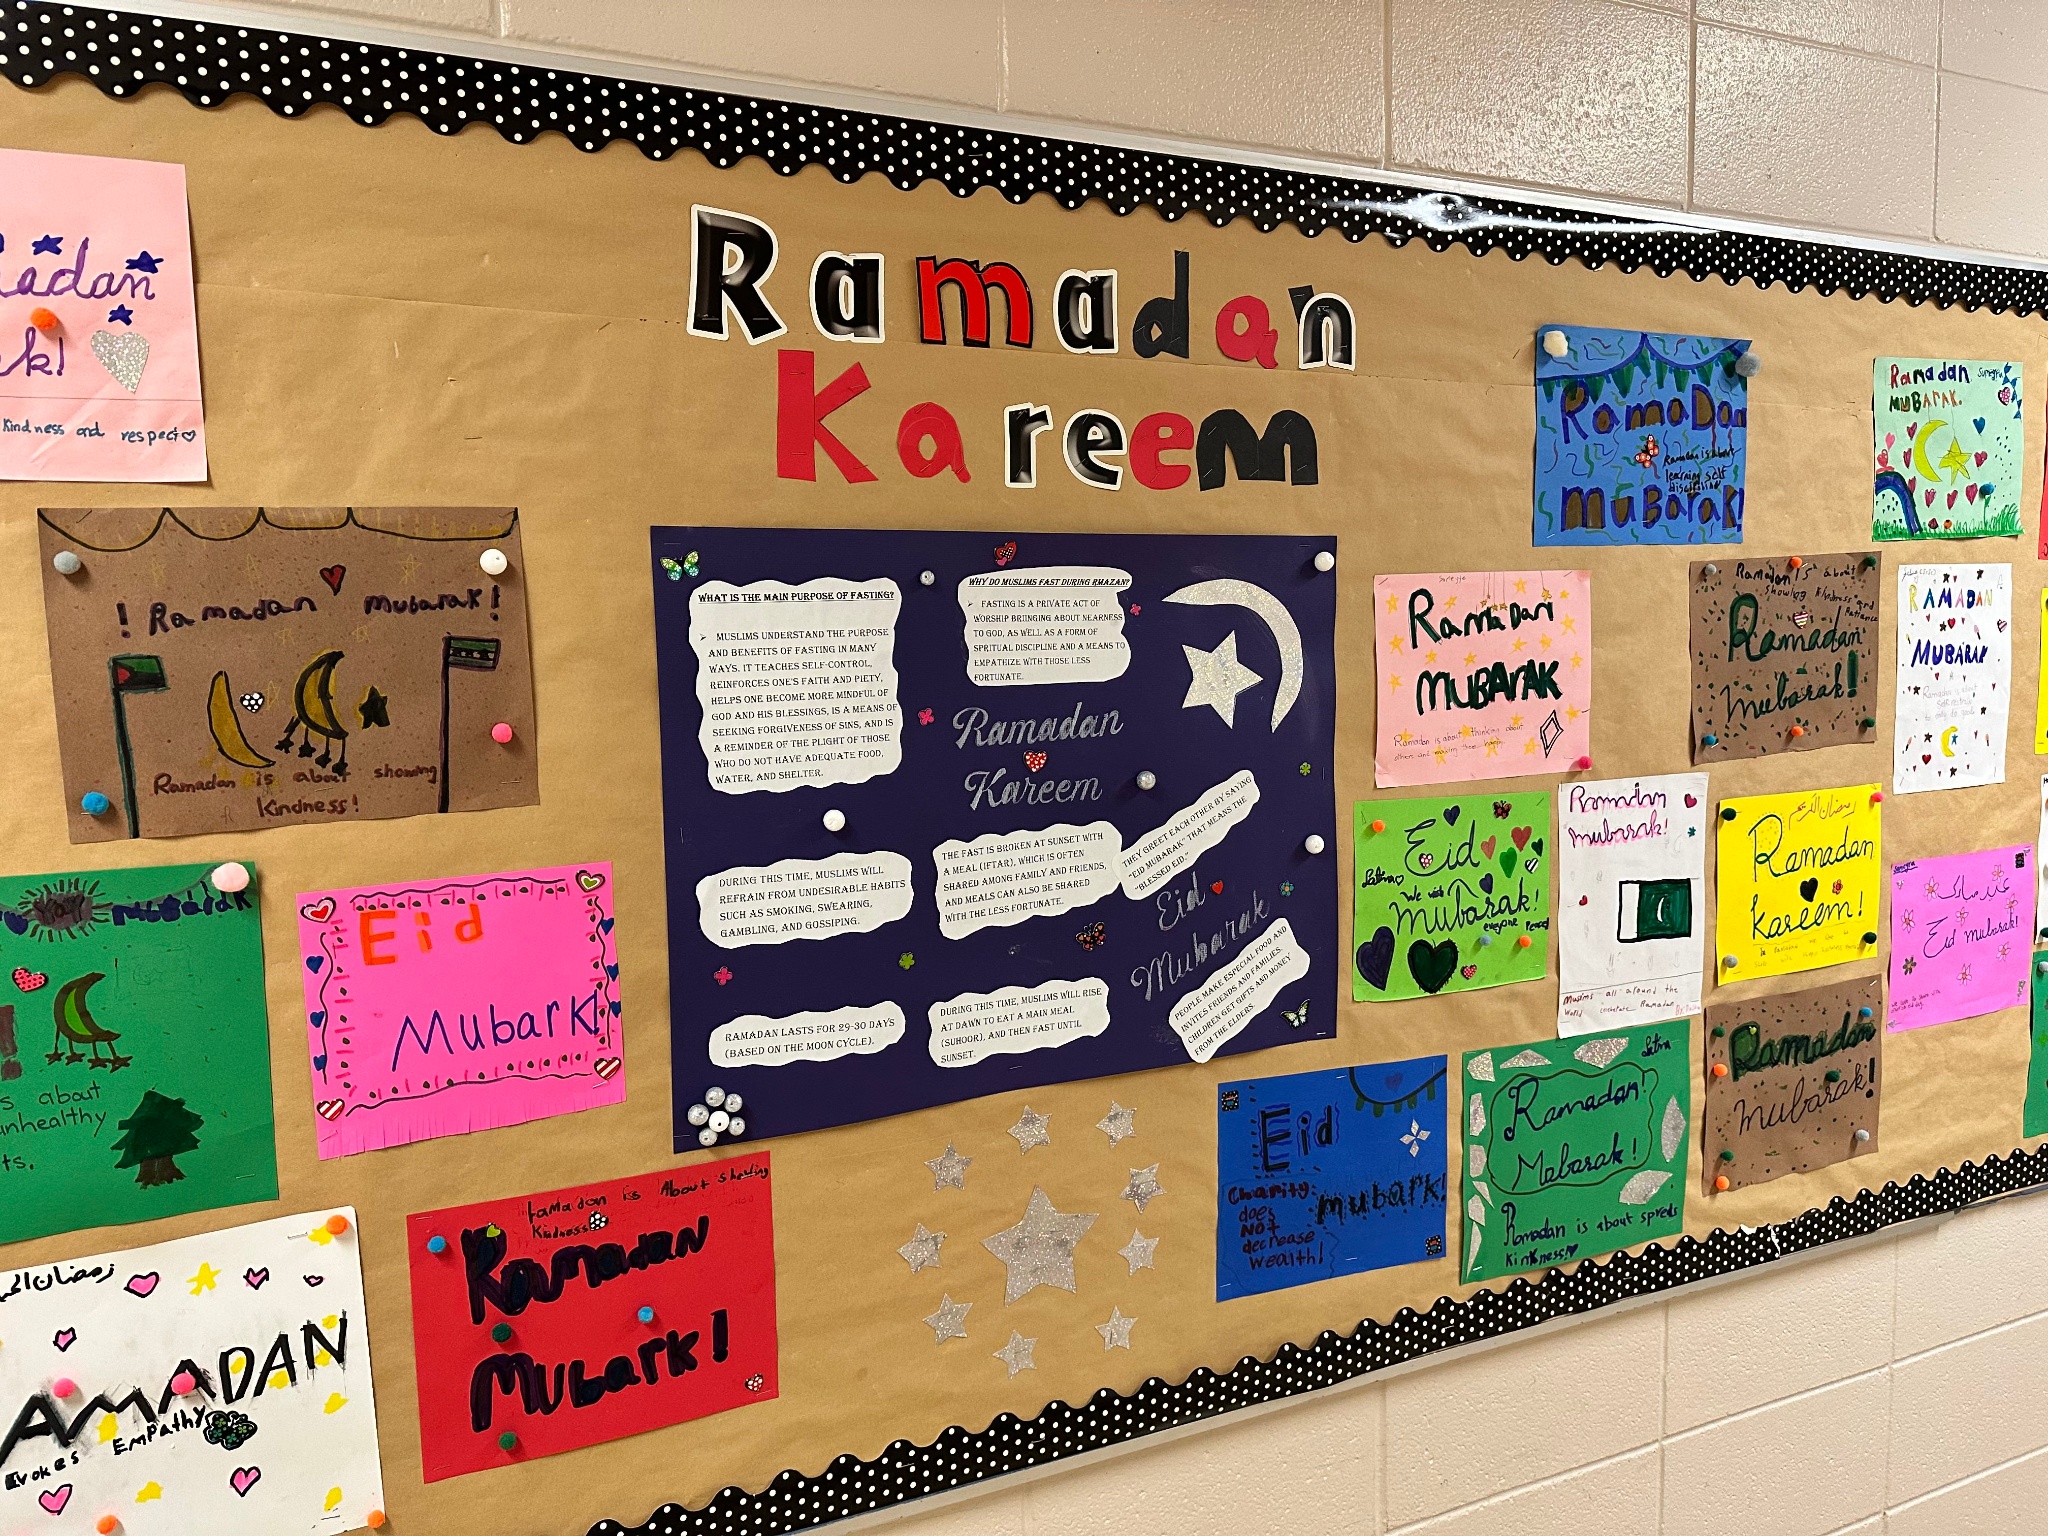 Ramadan
Kareem
adan
k!
kindness and respect
! Ramadan mubarak!
Ramadan is about showing
kindness!
mubarak
s about
unhealthy
ts.
Eid
Mubark!
رمضان
AMADAN
Evokes Empathy
Ramadan is About showing
kindness
Ramadan
Mubark!
WHAT IS THE MAIN PURPOSE OF FASTING?
➢ MUSLIMS UNDERSTAND THE PURPOSE
AND BENEFITS OF FASTING IN MANY
WAYS. IT TEACHES SELF-CONTROL,
REINFORCES ONE'S FAITH AND PIETY,
HELPS ONE BECOME MORE MINDFUL OF
GOD AND HIS BLESSINGS, IS A MEANS OF
SEEKING FORGIVENESS OF SINS, AND IS
A REMINDER OF THE PLIGHT OF THOSE
WHO DO NOT HAVE ADEQUATE FOOD,
WATER, AND SHELTER.
WHY DO MUSLIMS FAST DURING RMAZAN?
➢ FASTING IS A PRIVATE ACT OF
WORSHIP BRIINGING ABOUT NEARNESS
TO GOD, AS WELL AS A FORM OF
SPRITUAL DISCIPLINE AND A MEANS TO
EMPATHIZE WITH THOSE LESS
FORTUNATE.
Ramadan
Kareem
DURING THIS TIME, MUSLIMS WILL
REFRAIN FROM UNDESIRABLE HABITS
SUCH AS SMOKING, SWEARING,
GAMBLING, AND GOSSIPING.
THE FAST IS BROKEN AT SUNSET WITH
A MEAL (IFTAR), WHICH IS OFTEN
SHARED AMONG FAMILY AND FRIENDS,
AND MEALS CAN ALSO BE SHARED
WITH THE LESS FORTUNATE.
THEY GREET EACH OTHER BY SAYING
"EID MUBARAK" THAT MEANS THE
"BLESSED EID."
Eid
Mubarak
RAMADAN LASTS FOR 29-30 DAYS
(BASED ON THE MOON CYCLE).
DURING THIS TIME, MUSLIMS WILL RISE
AT DAWN TO EAT A MAIN MEAL
(SUHOOR), AND THEN FAST UNTIL
SUNSET.
PEOPLE MAKE ESPECIAL FOOD AND
INVITES FRIENDS AND FAMILIES.
CHILDREN GET GIFTS AND MONEY
FROM THE ELDERS.
RamaDan
Ramadan is about
learning self
discipline
MuBarak!
Ramadan
MUBARAK.
Ramadan
MUBARAK
Ramadan is about thinking about
others and making them happy
Ramadan is about
showing kindness and
Patience
Ramadan
mubarak!
RAMADAN
MUBARAK
Ramadan is about
Eid
We wish
Mubarak!
everyone Peace!
Ramadan
mubarak!
Muslims all around the
World celebrate Ramadan
رمضان الكريم
Ramadan
kareem!
عيد مبارك
Eid mubarak!
Eid
mubark!
Charity
does
NOT
decrease
wealth!
Ramadan!
Mabarak!
Ramadan is about spreds
kinkness!
Ramadan
mubarak!